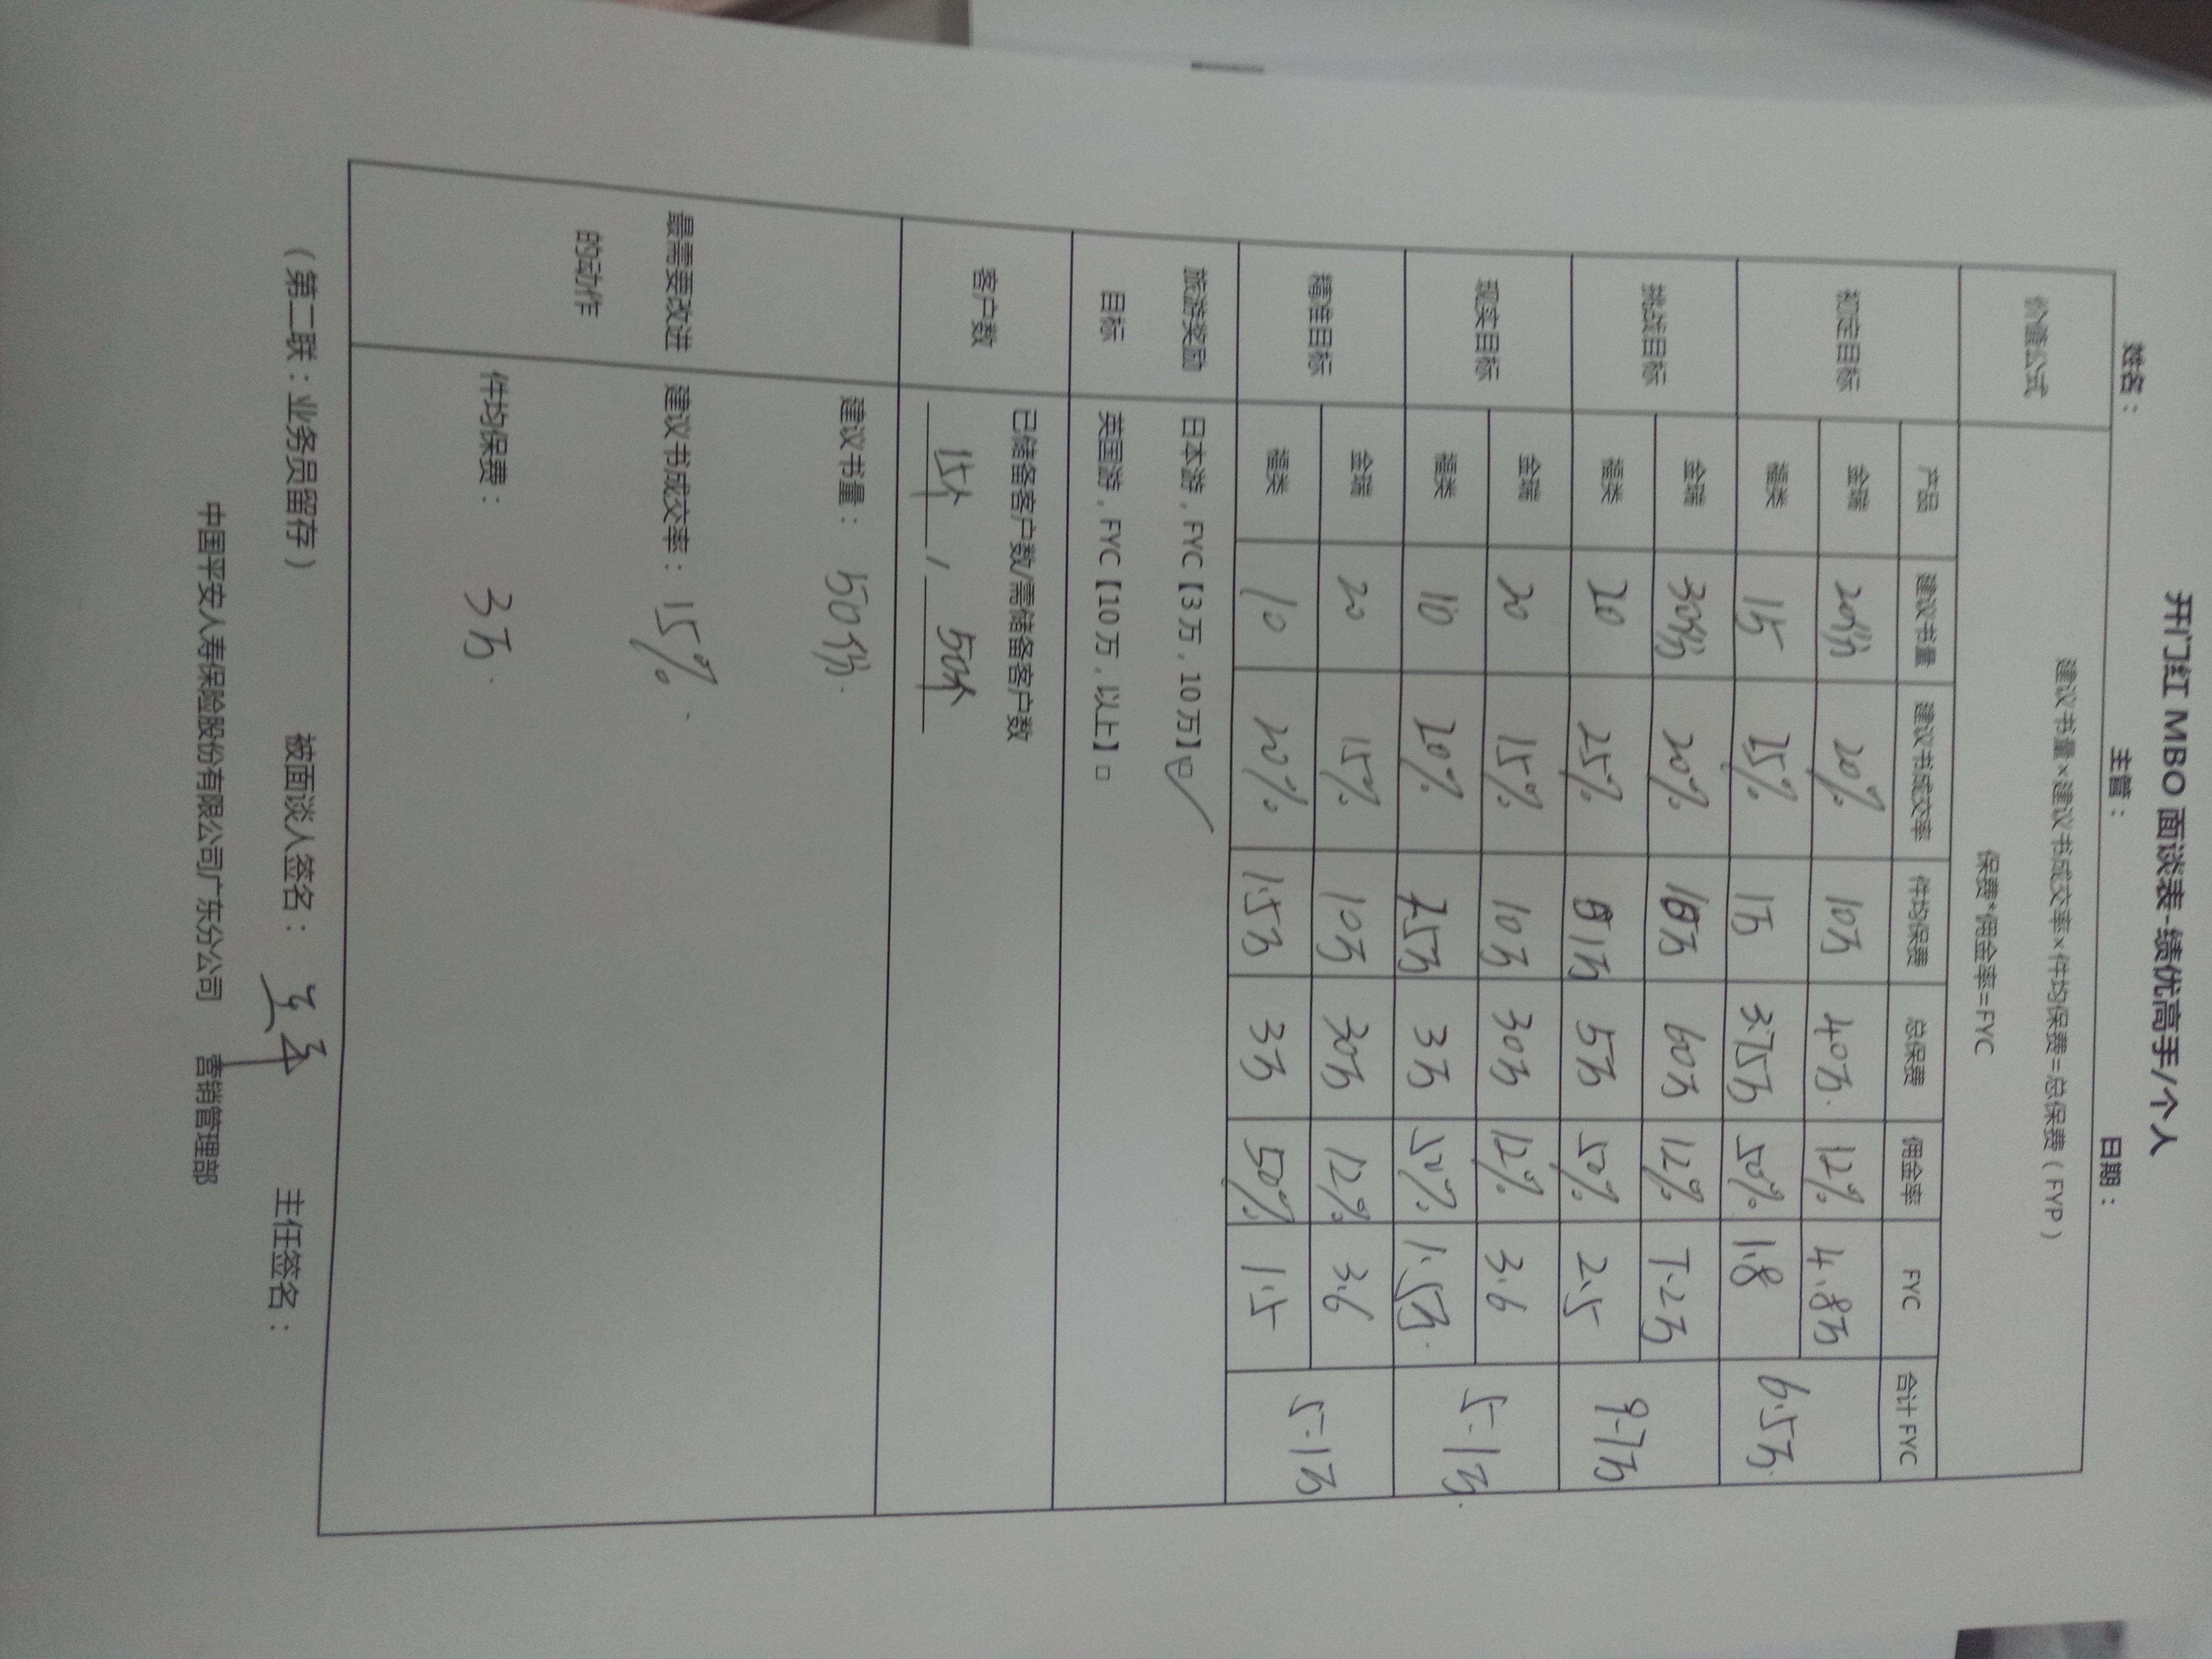 开门红 MBO 面谈表-绩优高手/个人
姓名： 主管： 日期：
价值公式 建议书量×建议书成交率×件均保费=总保费（FYP）
保费*佣金率=FYC
产品 建议书量 建议书成交率 件均保费 总保费 佣金率 FYC 合计 FYC
初定目标 金瑞 20份 20% 10万 40万. 12% 4.8万 6.5万.
福类 15 25% 1万 3.75万 50% 1.8
挑战目标 金瑞 30份 20% 10万 60万 12% 7.2万 9.7万
福类 20 25% 1万 5万 50% 2.5
现实目标 金瑞 20 15% 10万 30万 12% 3.6 5.1万.
福类 10 20% 1.5万 3万 50% 1.5万.
精准目标 金瑞 20 15% 10万 30万 12% 3.6 5.1万
福类 10 20% 1.5万 3万 50% 1.5
旅游奖励 日本游，FYC【3万，10万】□✓
目标 英国游，FYC【10万，以上】□
客户数 已储备客户数/需储备客户数
15个 / 50个
建议书量： 50份.
最需要改进 建议书成交率： 15%.
的动作
件均保费： 3万.
（第二联：业务员留存） 被面谈人签名： 主任签名：
中国平安人寿保险股份有限公司广东分公司 营销管理部